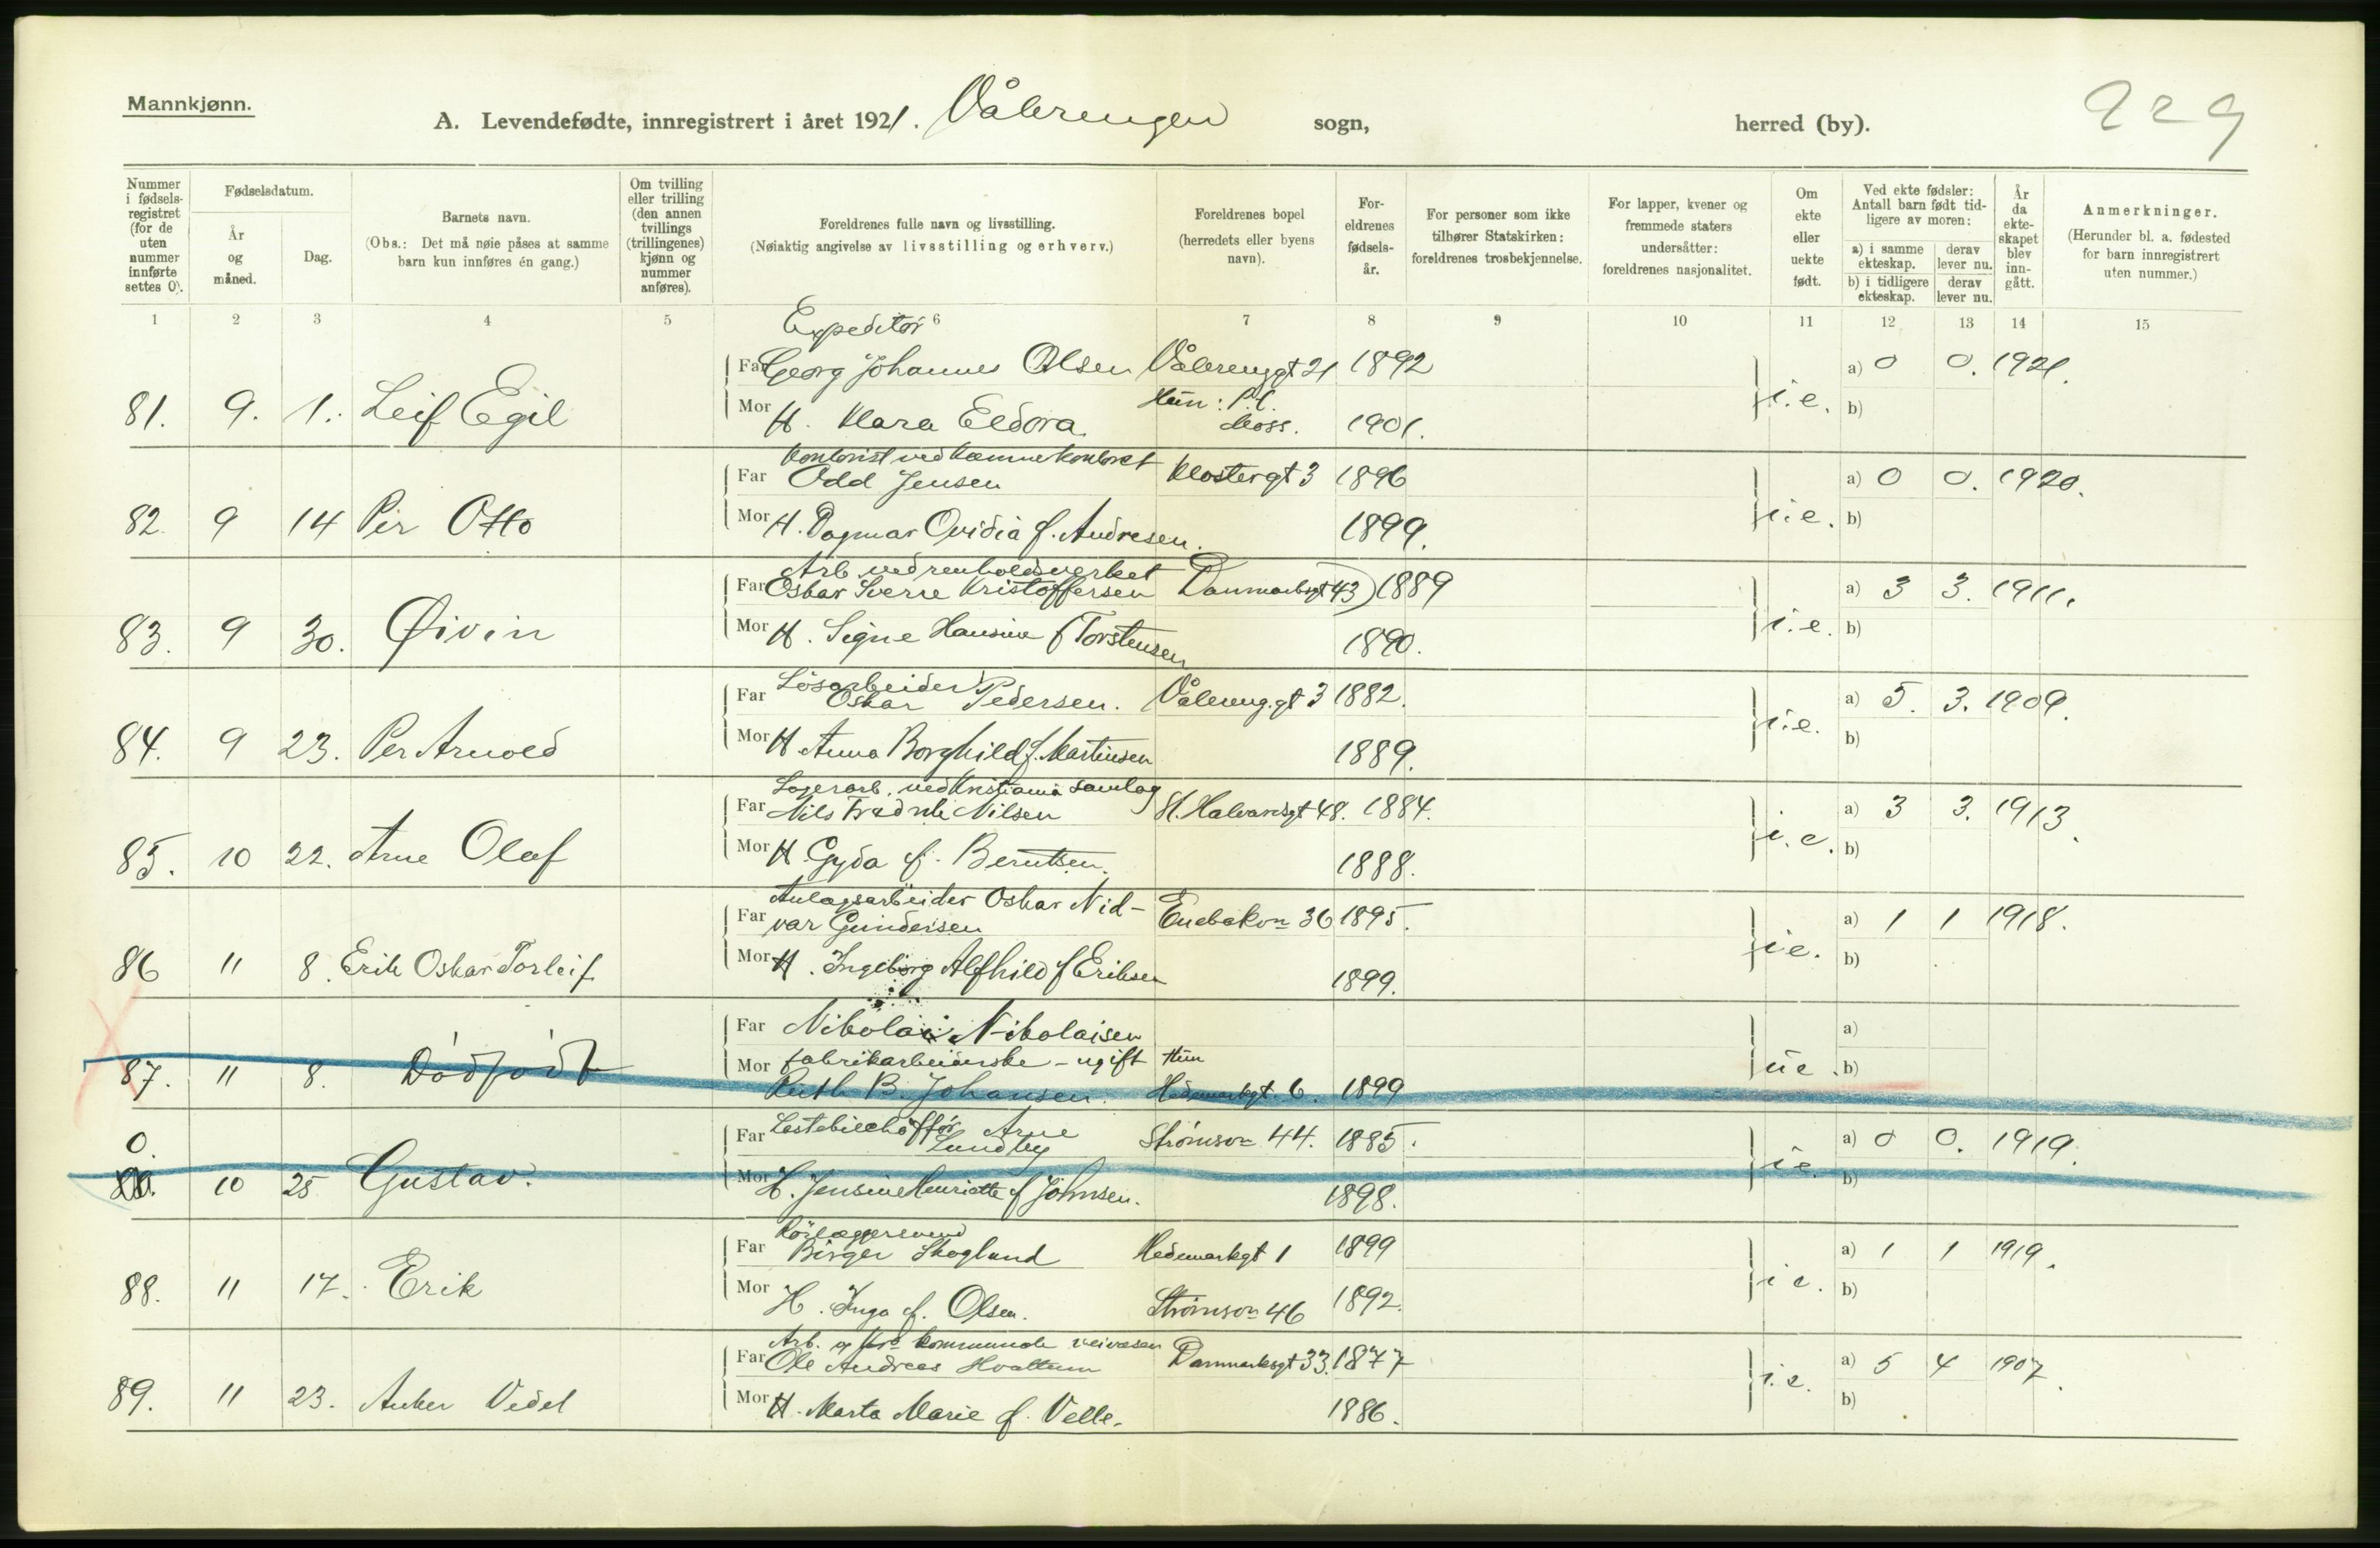 Mannkjønn.
A. Levendefødte, innregistrert i året 1921. Vålerengen sogn, herred (by). 229
Nummer i fødselsregistret (for de uten nummer innførte settes 0).
Fødselsdatum.
År og måned.
Dag.
Barnets navn.
(Obs.: Det må nøie påses at samme barn kun innføres én gang.)
Om tvilling eller trilling (den annen tvillings (trillingenes) kjønn og nummer anføres).
Foreldrenes fulle navn og livsstilling.
(Nøiaktig angivelse av livsstilling og erhverv.)
Foreldrenes bopel (herredets eller byens navn).
Foreldrenes fødselsår.
For personer som ikke tilhører Statskirken: foreldrenes trosbekjennelse.
For lapper, kvener og fremmede staters undersåtter: foreldrenes nasjonalitet.
Om ekte eller uekte født.
Ved ekte fødsler: Antall barn født tidligere av moren:
a) i samme ekteskap. derav lever nu.
b) i tidligere ekteskap. derav lever nu.
År da ekteskapet blev inngått.
Anmerkninger.
(Herunder bl. a. fødested for barn innregistrert uten nummer.)
1 2 3 4 5 6 7 8 9 10 11 12 13 14 15
Expeditør
Far Georg Johannes Olsen Vålerenggt 21 1892 a) 0 0. 1921.
81. 9. 1. Leif Egil Mor H. Klara Eldora Hun: Moss. 1901. i.e. b)
Kontorist ved Kæmnerkontoret
Far Odd Jensen Klostergt 3 1896 a) 0 0. 1920.
82. 9 14 Per Otto Mor H. Dagmar Ovidia f. Andresen. 1899. i.e. b)
Arb. ved renholdsverket
Far Oskar Sverre Kristoffersen Danmarksgt 43 1889 a) 3 3. 1911.
83. 9 30. Øivin Mor H. Signe Hansine f Torstensen 1890. i.e. b)
Løsarbeider
Far Oskar Pedersen. Vålereng.gt 3 1882. a) 5. 3. 1909.
84. 9 23. Per Arnold Mor H Anna Borghild f. Martinsen 1889. i.e. b)
Lagerarb. ved Kristiania Samlag
Far Nils Fredrik Nilsen St. Halvardsgt 48. 1884. a) 3 3. 1913.
85. 10 22. Arne Olaf Mor H Gyda f. Berntsen. 1888. i.e. b)
Anlagsarbeider Oskar Nid-
Far var Gundersen Enebakvn 36 1895. a) 1 1 1918.
86 11 8. Erik Oskar Torleif Mor H. Ingeborg Alfhild f Eriksen 1899. i e. b)
Far Nikolai Nikolaisen a)
87. 11 8. Dødfødt Mor fabrikarbeiderske - ugift Hun ue. b)
Ruth B. Johansen. Hedemarkgt. 6. 1899
0. Far Lastebilchaffør Arne Lundby Strømsvn 44. 1885. a) 0 0. 1919.
10 25 Gustav. Mor H. Jensine Henriette f Johnsen. 1898. i e. b)
Rørlæggersvend
Far Birger Skogland Hedemarkgt 1 1899 a) 1 1 1919.
88. 11 17. Erik Mor H. Inga f. Olsen. Strømsvn 46 1892. i e. b)
Arb. kommunale veivæsen
Far Ole Andreas Hvattum Danmarksgt 33. 1877 a) 5 4 1907.
89. 11 23. Anker Videl Mor H. Marta Marie f. Velle. 1886. i.e. b)